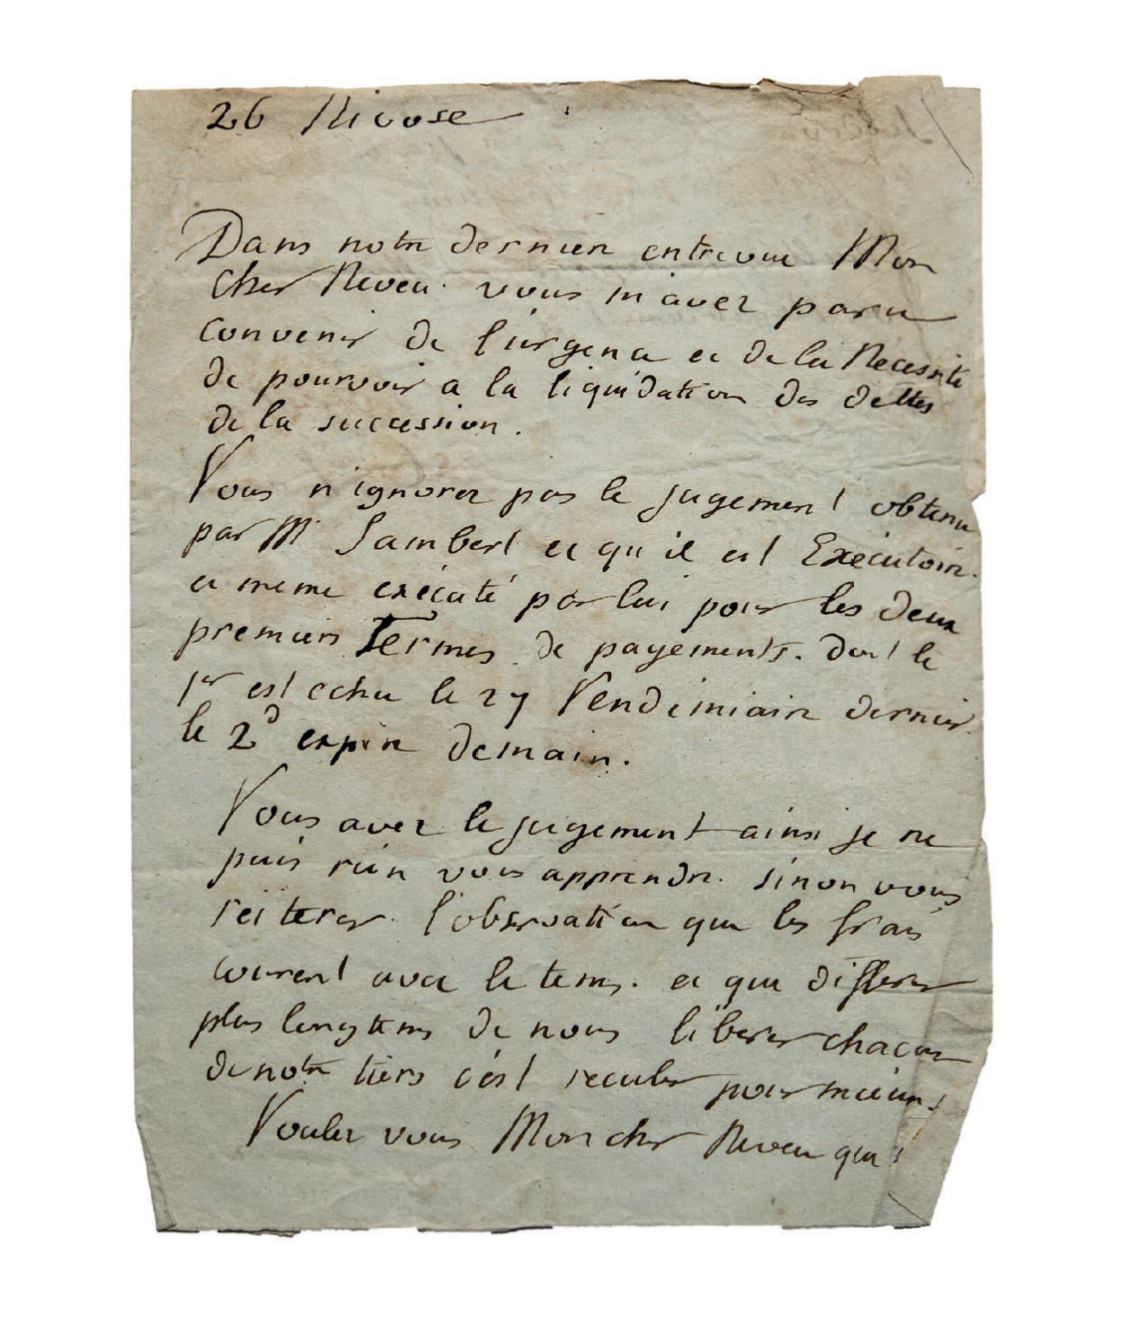 26 Nivose
Dans notre dernier entrevue Mon
cher Neveu. vous m'avez paru
convenir de l'urgence et de la Necessité
de pourvoir a la liquidation des dettes
de la succession.
Vous n'ignorez pas le jugement obtenu
par Mr Lambert et qu'il est Exécutoire.
et meme exécuté par lui pour les deux
premiers Termes de payements. dont le
1er est echu le 27 Vendemiaire dernier.
le 2d expire demain.
Vous avez le jugement ainsi je ne
puis rien vous apprendre. sinon vous
reiterer l'observation que les frais
courent avec le tems. et que differer
plus longtems de nous liberer chacun
de notre tiers c'est reculer pour
Voulez vous Mon cher Neveu que